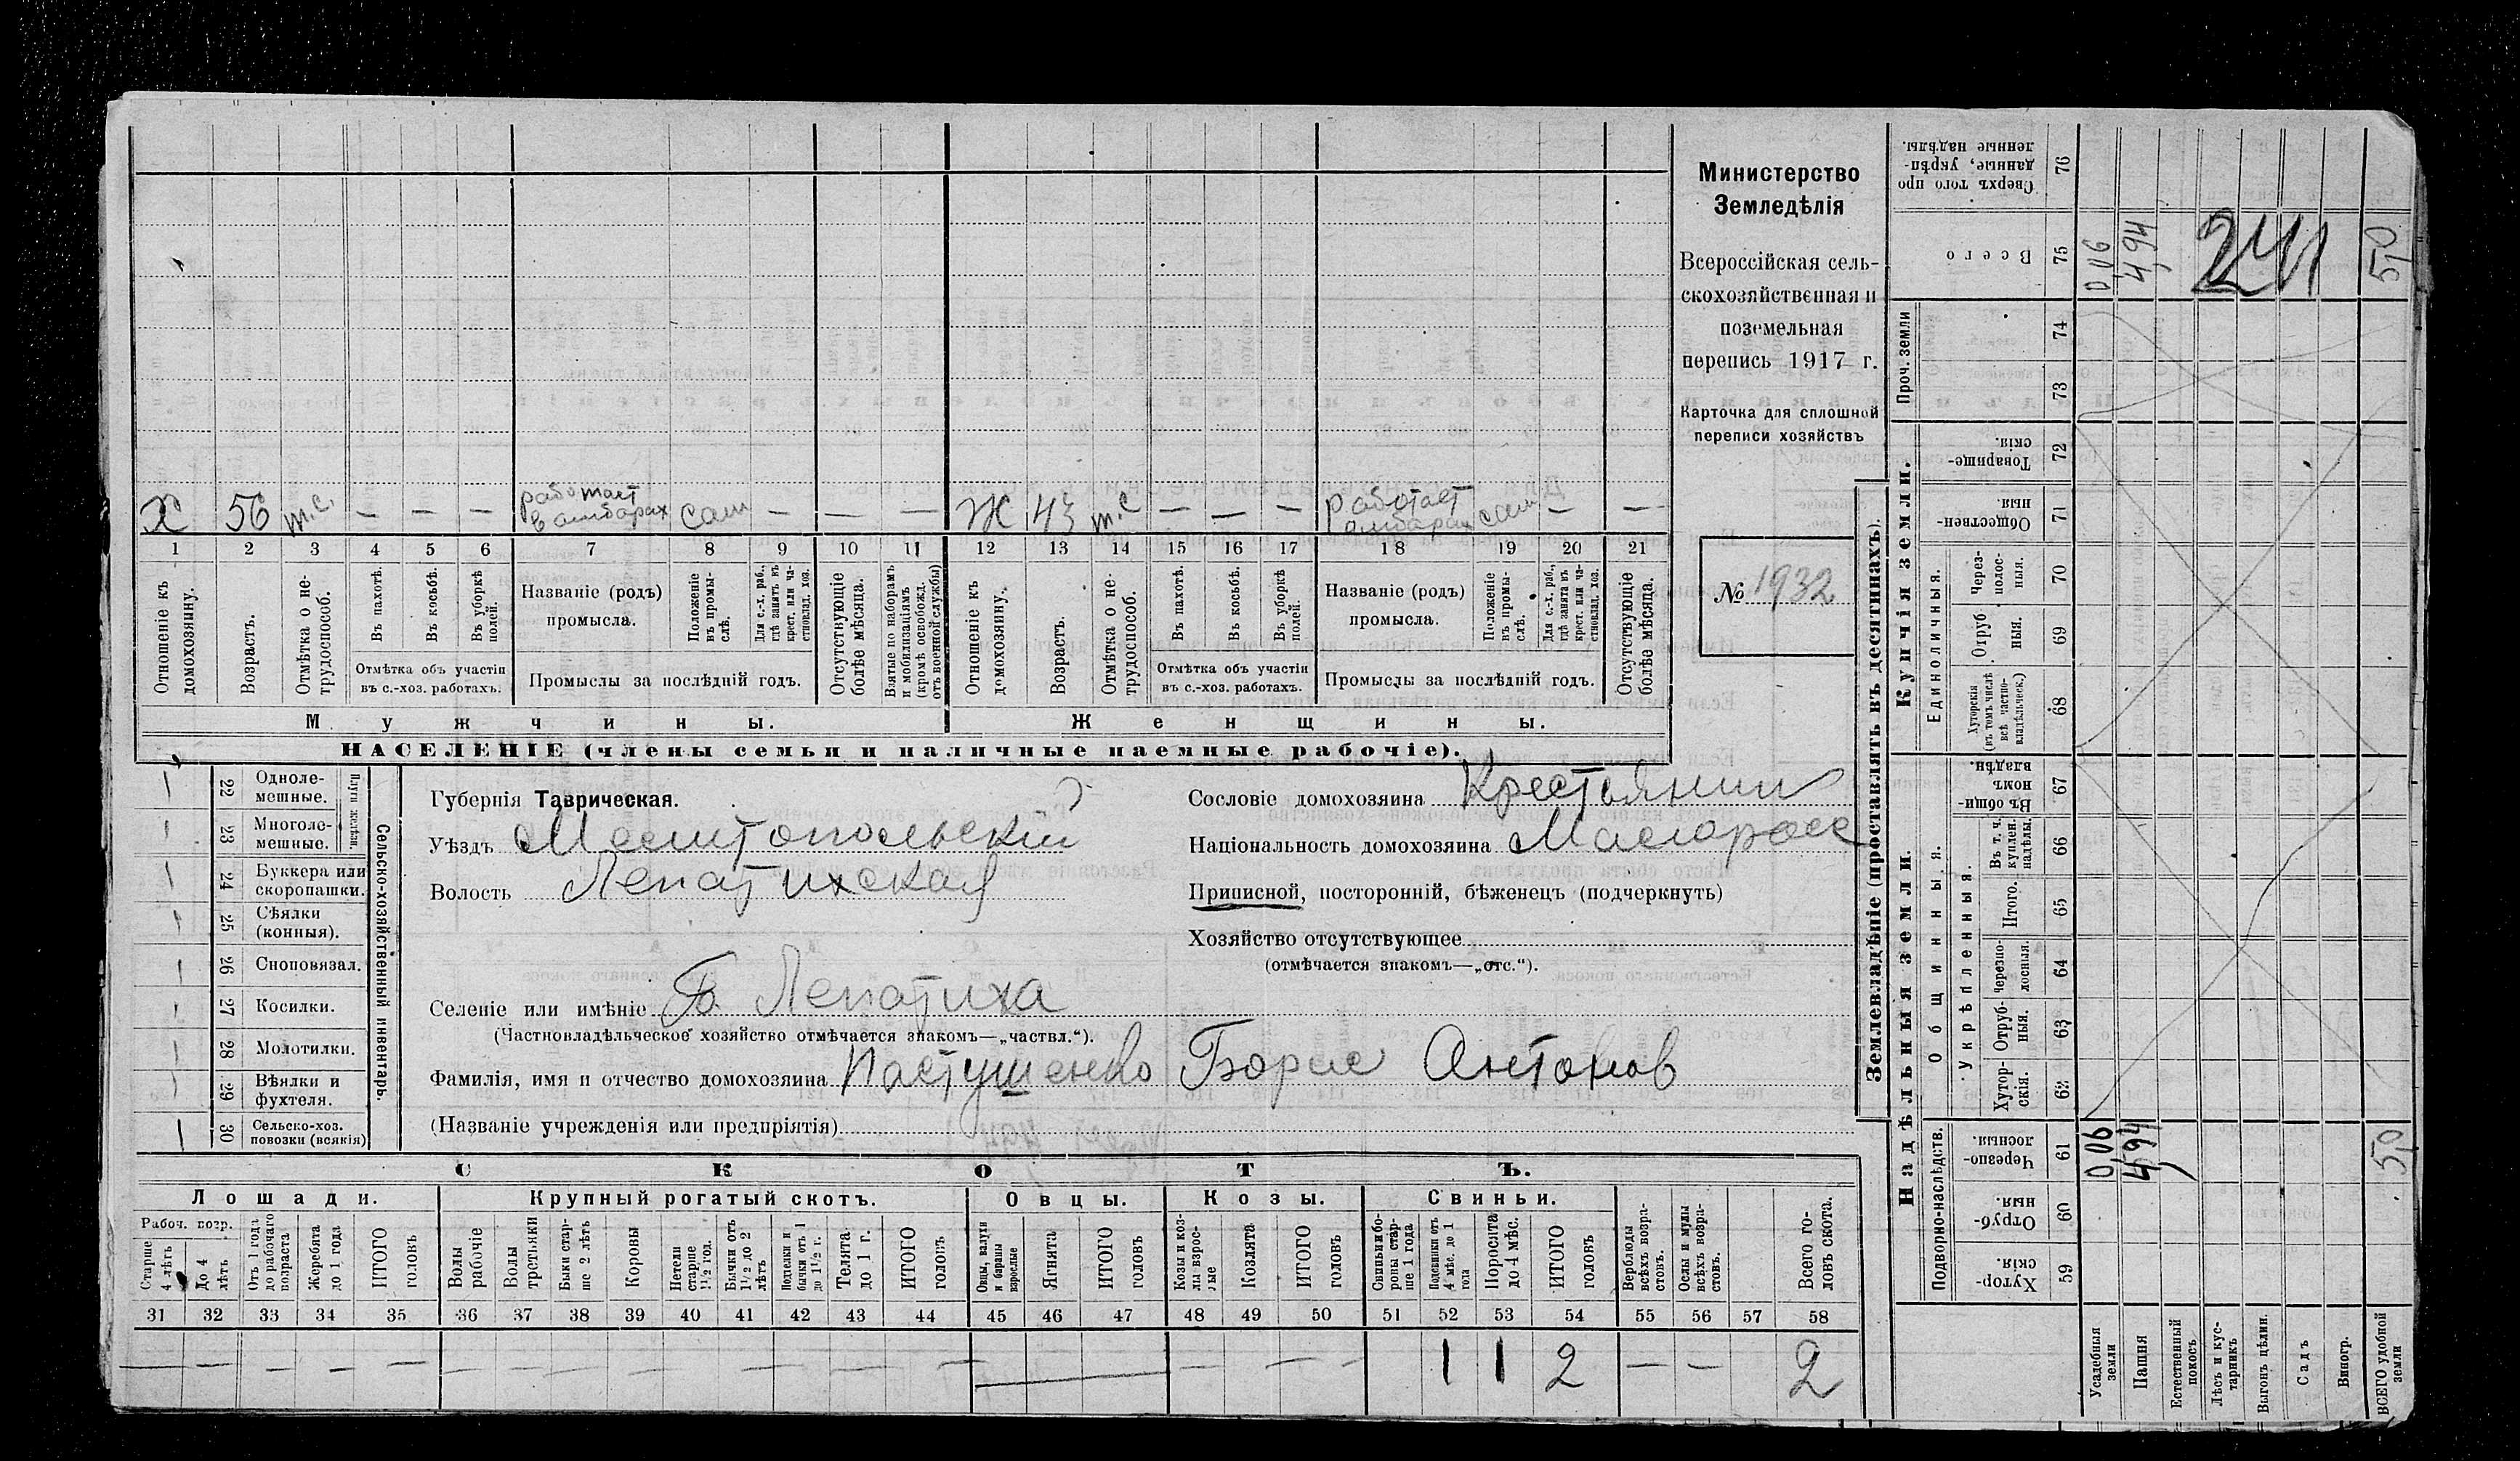 Министерство
Земледѣлія
Всероссійская сель-
скохозяйственная и
поземельная
перепись 1917 г.
Карточка для сплошной
переписи хозяйствъ
№ 1932
Х 56 т.с. — — — работает в амбарах сам — — — Ж 43 т.с — — — работает амбарах сам — —
1 2 3 4 5 6 7 8 9 10 11 12 13 14 15 16 17 18 19 20 21
Отношеніе къ домохозяину.
Возрастъ.
Отмѣтка о не-трудоспособ.
Въ пахотѣ.
Въ косьбѣ.
Въ уборкѣ полей.
Отмѣтка объ участіи
въ с.-хоз. работахъ.
Названіе (родъ)
промысла.
Положеніе въ промы-слѣ.
Для с.-х. раб., гдѣ занятъ въ крест. или ча-стновлад. хоз.
Промыслы за послѣдній годъ.
Отсутствующіе болѣе мѣсяца.
Взятые по наборамъ и мобилизаціямъ (кромѣ освобожд. отъ военной службы)
Отношеніе къ домохозяину.
Возрастъ.
Отмѣтка о не-трудоспособ.
Въ пахотѣ.
Въ косьбѣ.
Въ уборкѣ полей.
Отмѣтка объ участіи
въ с.-хоз. работахъ.
Названіе (родъ)
промысла.
Положеніе въ промы-слѣ.
Для с.-х. раб., гдѣ занята въ крест. или ча-стновлад. хоз.
Промыслы за послѣдній годъ.
Отсутствующіе болѣе мѣсяца.
Мужчины. Женщины.
НАСЕЛЕНІЕ (члены семьи и наличные наемные рабочіе).
22 Одноле-мешные.
23 Многоле-мешные.
Плуги желѣзн.
24 Буккера или скоропашки.
25 Сѣялки (конныя).
26 Сноповязал.
27 Косилки.
28 Молотилки.
29 Вѣялки и фухтеля.
30 Сельско-хоз. повозки (всякія)
Сельско-хозяйственный инвентарь.
Губернія Таврическая.
Уѣздъ Мелитопольский
Волость Лепатихская
Сословіе домохозяина Крестьянин
Національность домохозяина Малоросс
Приписной, посторонній, бѣженецъ (подчеркнуть)
Хозяйство отсутствующее
(отмѣчается знакомъ—„отс.“).
Селеніе или имѣніе Б. Лепатиха
(Частновладѣльческое хозяйство отмѣчается знакомъ—„частвл.“).
Фамилія, имя и отчество домохозяина Пастушенко Борис Антонов
(Названіе учрежденія или предпріятія)
СКОТЪ.
Лошади. Крупный рогатый скотъ. Овцы. Козы. Свиньи.
Рабоч. возр.
Старше 4 лѣтъ
До 4 лѣтъ
Отъ 1 года до рабочаго возраста
Жеребята до 1 года
ИТОГО головъ
Волы рабочіе
Волы третьяки
Быки стар-ше 2 лѣтъ
Коровы
Нетели старше 1½ год.
Бычки отъ 1½ до 2 лѣтъ
Подтелки и бычки отъ 1 до 1½ г.
Телята до 1 г.
ИТОГО головъ
Овцы, валухи и бараны взрослые
Ягнята
ИТОГО головъ
Козы и коз-лы взрос-лые
Козлята
ИТОГО головъ
Свиньи и бо-ровы стар-ше 1 года
Подсвинки отъ 4 мѣс. до 1 года
Поросята до 4 мѣс.
ИТОГО головъ
Верблюды всѣхъ возра-стовъ.
Ослы и мулы всѣхъ возра-стовъ.
Всего го-ловъ скота.
31 32 33 34 35 36 37 38 39 40 41 42 43 44 45 46 47 48 49 50 51 52 53 54 55 56 57 58
1 1 2 — — 2
Землевладѣніе (проставлять въ десятинахъ).
Надѣльныя земли. Купчія земли. Проч. земли
Подворно-наслѣдств.
Общинныя.
Укрѣпленныя.
Единоличныя.
59 Хутор-скія.
60 Отруб-ныя.
61 Черезпо-лосныя.
62 Хутор-скія.
63 Отруб-ныя.
64 Черезпо-лосныя.
65 Итого.
66 Въ т. ч. куплен. надѣлы.
67 Въ общи-номъ владѣн.
68 Хуторскія (въ томъ числѣ всѣ частно-владѣльческ.)
69 Отруб ныя.
70 Через-полос-ныя.
71 Обществен-ныя
72 Товарище-скія.
73
74
75 Всего
76 Сверхъ того про данные, укрѣп-ленные надѣлы.
0,06 4,94 241 5,0
0,06 4,94 5,0
Усадебныя земли
Пашня
Естественный покосъ
Лѣсъ и кус-тарникъ
Выгонъ цѣлин.
Садъ
Виногр.
ВСЕГО удобной земли